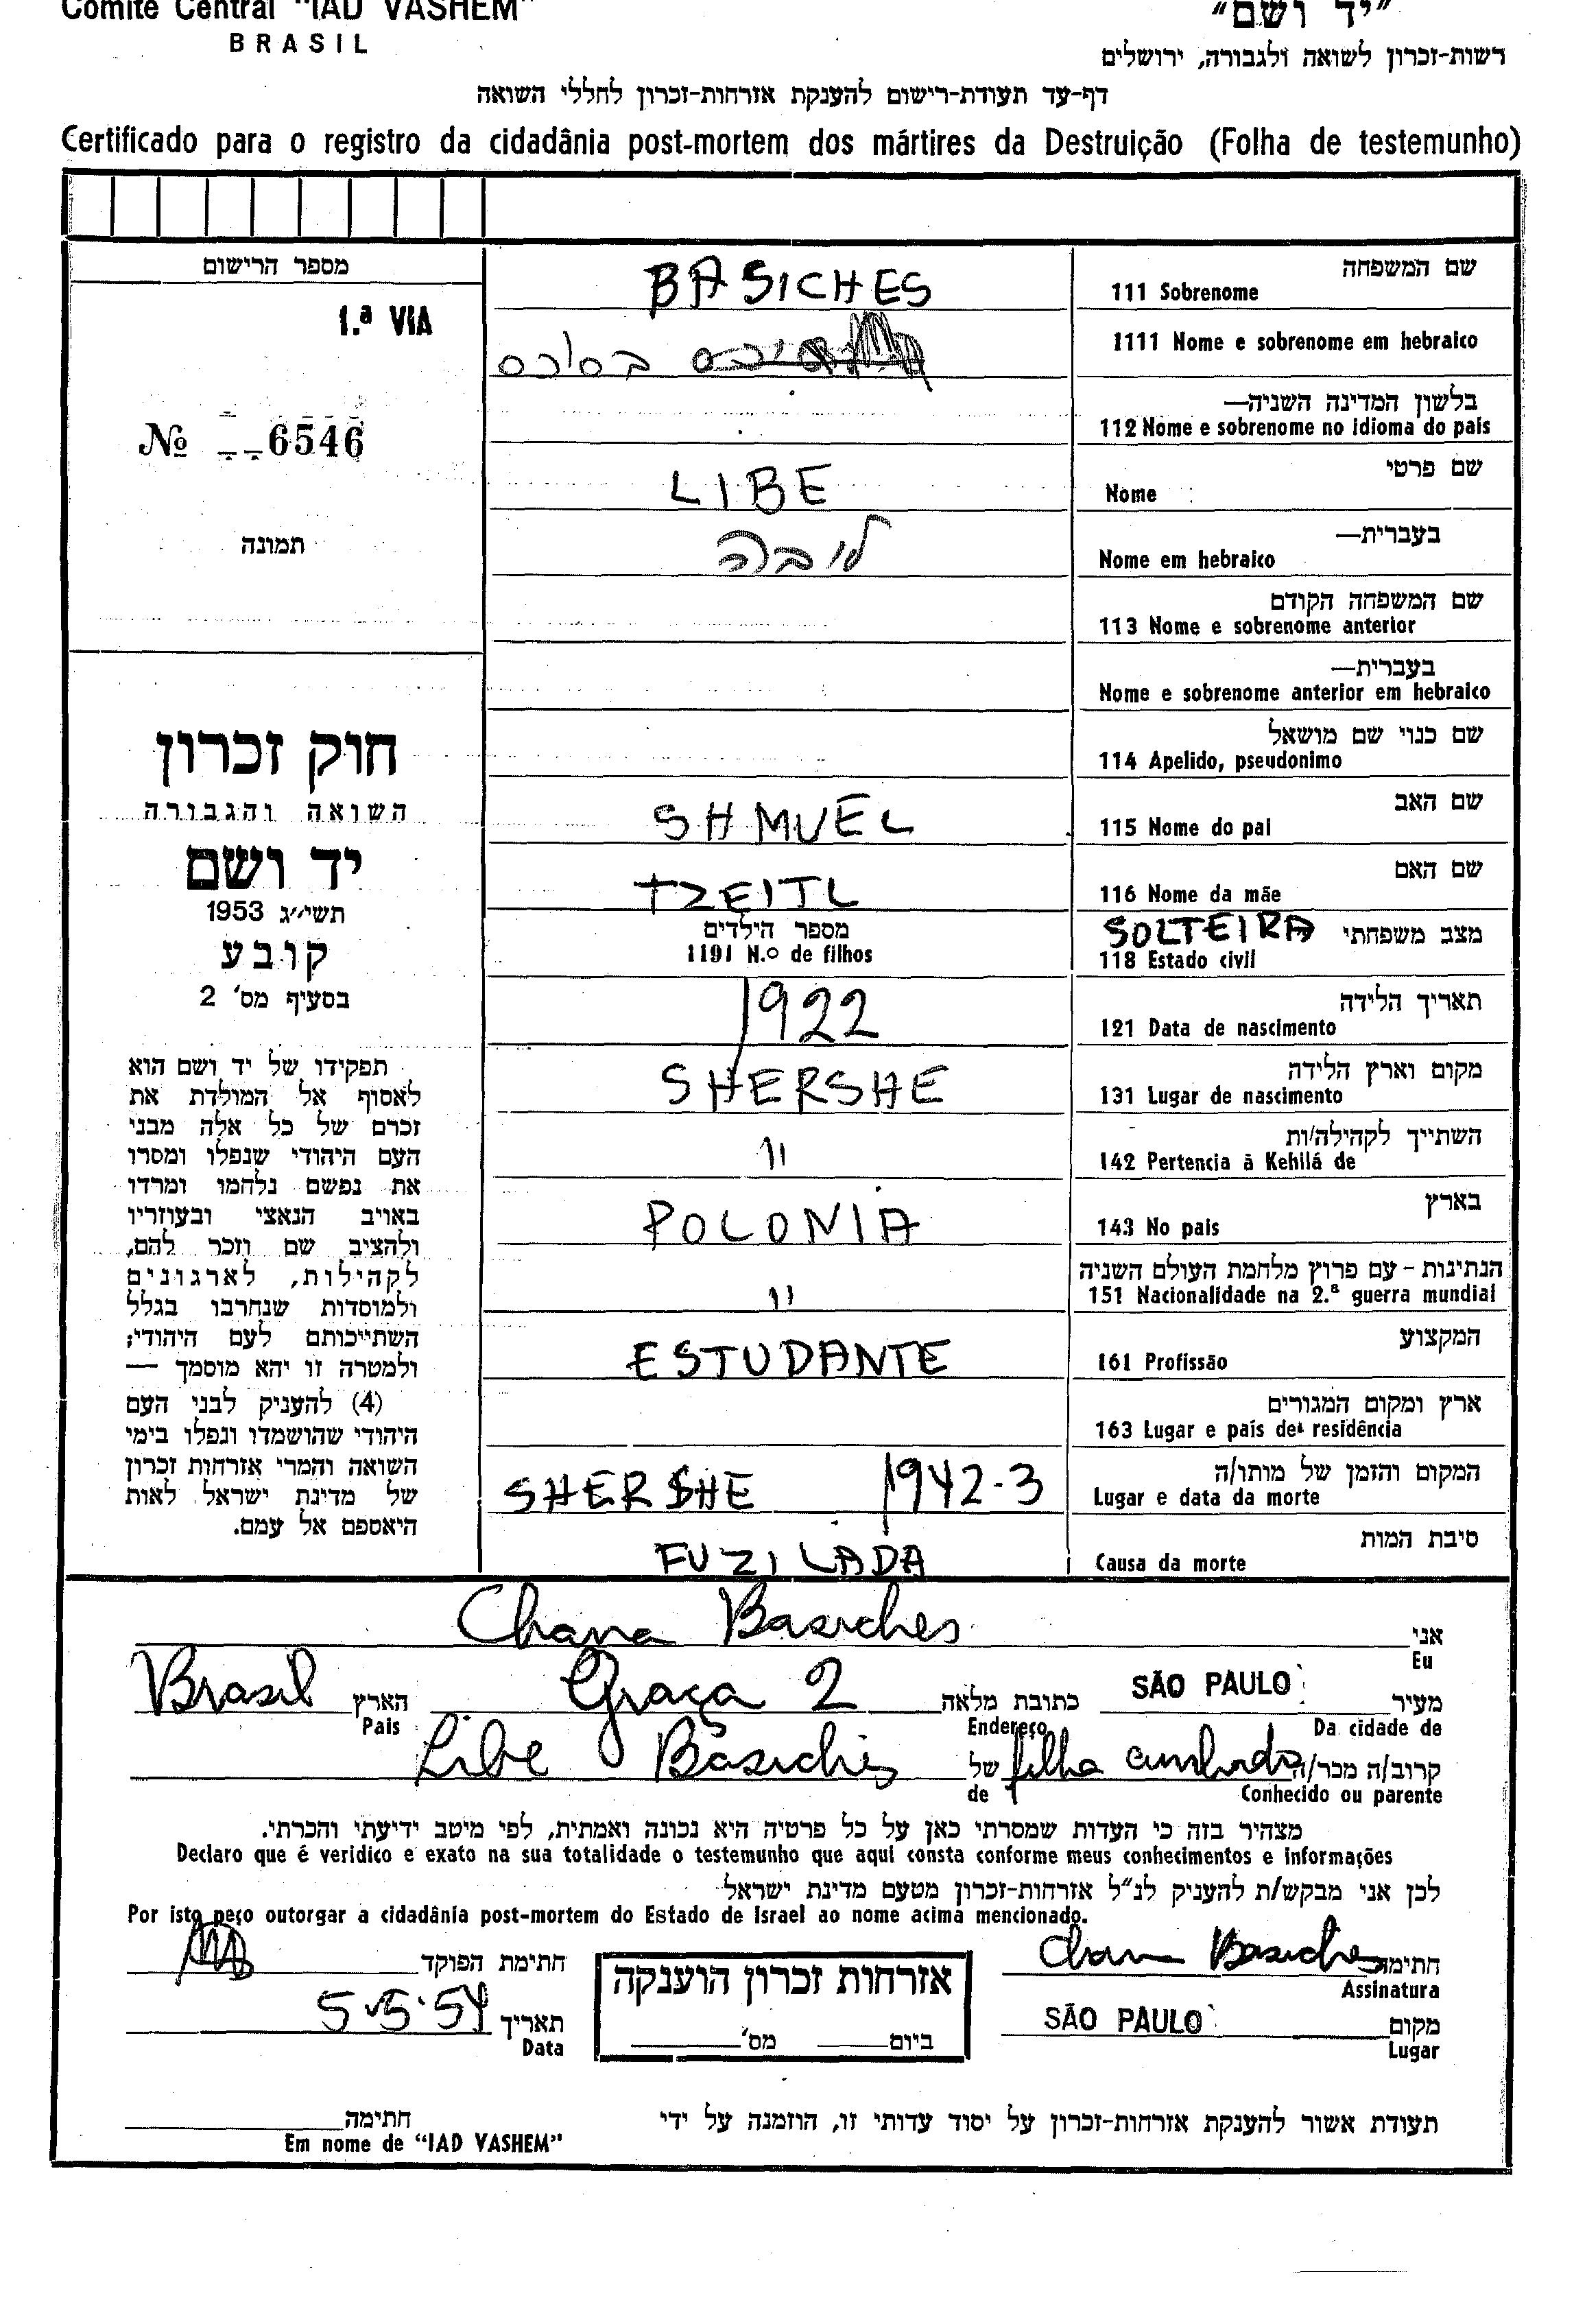 Comitê Central "IAD VASHEM"
BRASIL
"יד ושם"
רשות-זכרון לשואה ולגבורה, ירושלים
דף-עד תעודת-רישום להענקת אזרחות-זכרון לחללי השואה
Certificado para o registro da cidadânia post-mortem dos mártires da Destruição (Folha de testemunho)
מספר הרישום
1.ª VIA
№ 6546
תמונה
חוק זכרון
השואה והגבורה
יד ושם
תשי"ג 1953
קובע
בסעיף מס' 2
תפקידו של יד ושם הוא
לאסוף אל המולדת את
זכרם של כל אלה מבני
העם היהודי שנפלו ומסרו
את נפשם נלחמו ומרדו
באויב הנאצי ובעוזריו
ולהציב שם וזכר להם,
לקהילות, לארגונים
ולמוסדות שנחרבו בגלל
השתייכותם לעם היהודי;
ולמטרה זו יהא מוסמך —
(4) להעניק לבני העם
היהודי שהושמדו ונפלו בימי
השואה והמרי אזרחות זכרון
של מדינת ישראל לאות
היאספם אל עמם.
שם המשפחה
111 Sobrenome BASICHES
1111 Nome e sobrenome em hebraico
בלשון המדינה השניה—
112 Nome e sobrenome no idioma do país
שם פרטי
Nome LIBE
בעברית—
Nome em hebraico ליבה
שם המשפחה הקודם
113 Nome e sobrenome anterior
בעברית—
Nome e sobrenome anterior em hebraico
שם כנוי שם מושאל
114 Apelido, pseudonimo
שם האב
115 Nome do pai SHMUEL
שם האם
116 Nome da mãe TZEITL
מצב משפחתי SOLTEIRA
118 Estado civil
מספר הילדים
1191 N.º de filhos
תאריך הלידה
121 Data de nascimento 1922
מקום וארץ הלידה
131 Lugar de nascimento SHERSHE
השתייך לקהילה/ות
142 Pertencia à Kehilá de "
בארץ
143 No pais POLONIA
הנתינות - עם פרוץ מלחמת העולם השניה
151 Nacionalidade na 2.ª guerra mundial "
המקצוע
161 Profissão ESTUDANTE
ארץ ומקום המגורים
163 Lugar e país de residência
המקום והזמן של מותו/ה
Lugar e data da morte SHERSHE 1942-3
סיבת המות
Causa da morte FUZILADA
אני Chana Basiches
Eu
מעיר SÃO PAULO כתובת מלאה Graça 2 הארץ Brasil
Da cidade de Endereço Pais
קרוב/ה מכר/ה filha cunhada של Libe Basiches
Conhecido ou parente de
מצהיר בזה כי העדות שמסרתי כאן על כל פרטיה היא נכונה ואמתית, לפי מיטב ידיעתי והכרתי.
Declaro que é veridico e exato na sua totalidade o testemunho que aqui consta conforme meus conhecimentos e informações
לכן אני מבקש/ת להעניק לנ"ל אזרחות-זכרון מטעם מדינת ישראל
Por isto peço outorgar a cidadânia post-mortem do Estado de Israel ao nome acima mencionado.
חתימה Chana Basiches
Assinatura
מקום SÃO PAULO
Lugar
אזרחות זכרון הוענקה
ביום מס'
חתימת הפוקד
תאריך 5.5.54
Data
תעודת אשור להענקת אזרחות-זכרון על יסוד עדותי זו, הוזמנה על ידי
חתימה
Em nome de "IAD VASHEM"